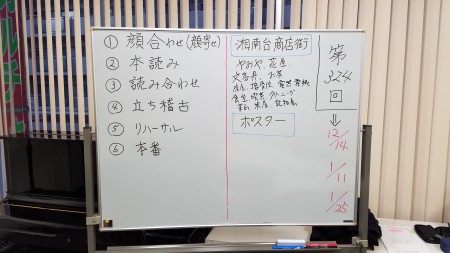 ① 顔合わせ(顔寄せ)
② 本読み
③ 読み合わせ
④ 立ち稽古
⑤ リハーサル
⑥ 本番
湘南台商店街
やおや、花屋
文房具、お茶
食堂、喫茶、クリーニング
ポスター
第
324
回
⇓
12/14
1/11
1/25